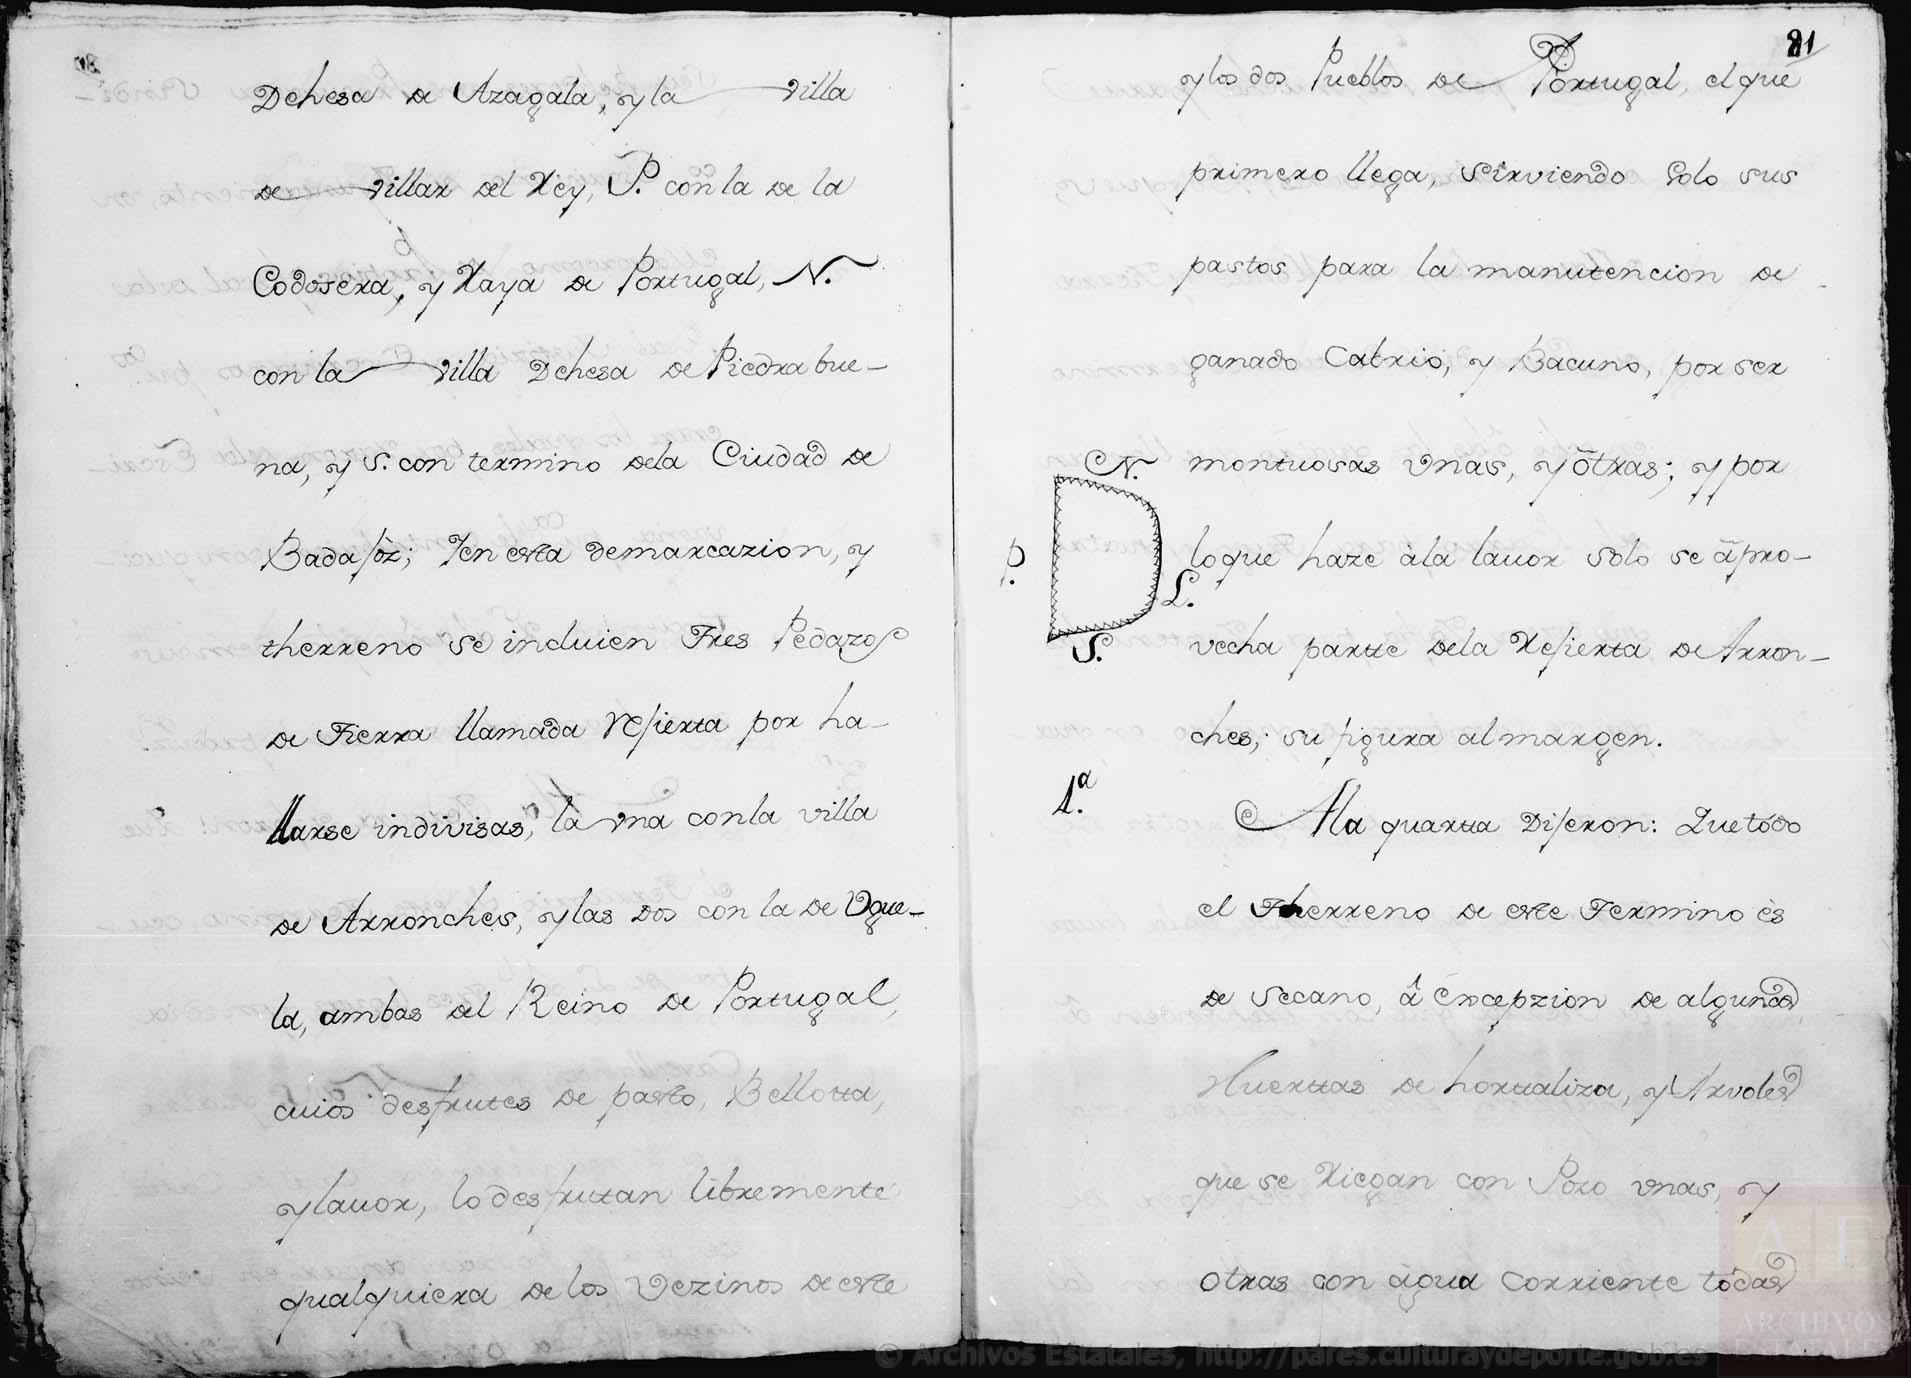 Dehesa de Azagala, y la villa
de villar del Rey, P. con la de la
Codosera, y Raya de Portugal, N.
con la villa Dehesa de Piedra bue-
na, y S. con termino dela Ciudad de
Badajoz; Yen esta demarcazion, y
therreno se incluien Tres Pedazos
de Tierra llamada Refierta por ha-
llarse indivisas, la vna con la villa
de Arronches, y las dos con la de Ogue-
la, ambas del Reino de Portugal,
cuios desfrutes de pasto, Bellotta,
y lauor, lo desfrutan libremente
qualquiera de los Vezinos de este
21
y los dos Pueblos de Portugal, el que
primero llega, sirviendo solo sus
pastos para la manutencion de
ganado Cabrio, y Bacuno, por ser
montuosas vnas, y ótras; y por
lo que haze àla lauor solo se âpro-
vecha partte dela Refierta de Arron-
ches; su figura al margen.
N.
P.
L.
S.
4.ª
Ala quartta Dijeron: Que tódo
el Therreno de este Termino ès
de secano, â excepzion de algunas
Huerttas de horttaliza, y Arvoles
que se Riegan con Pozo vnas, y
otras con àgua corriente tódas
© Archivos Estatales, http://pares.culturaydeporte.gob.es
AE
ARCHIVOS
ESTATALES